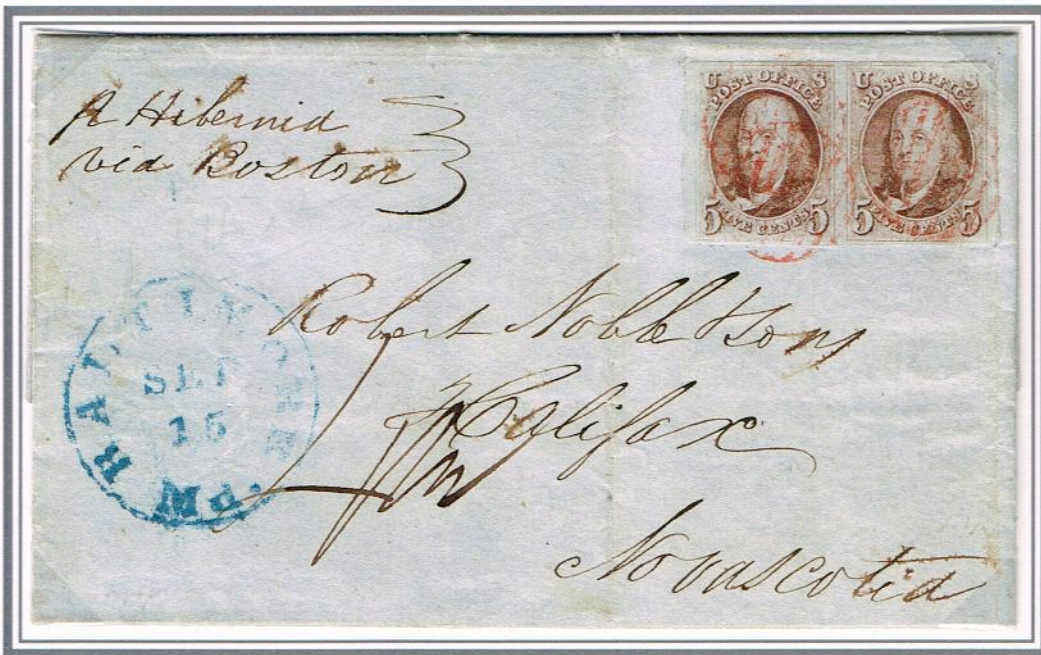 P Hibernia
via Boston
U S
POST OFFICE
5 FIVE CENTS 5
U S
POST OFFICE
5 FIVE CENTS 5
BALTIMORE
SEP
15
Md.
Robert Noble & Sons
Halifax
Novascotia